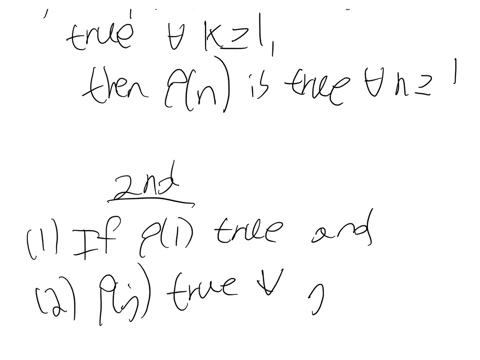 true ∀ k≥1,
then P(n) is true ∀ n≥1
2nd
(1) If P(1) true and
(2) P(j) true ∀